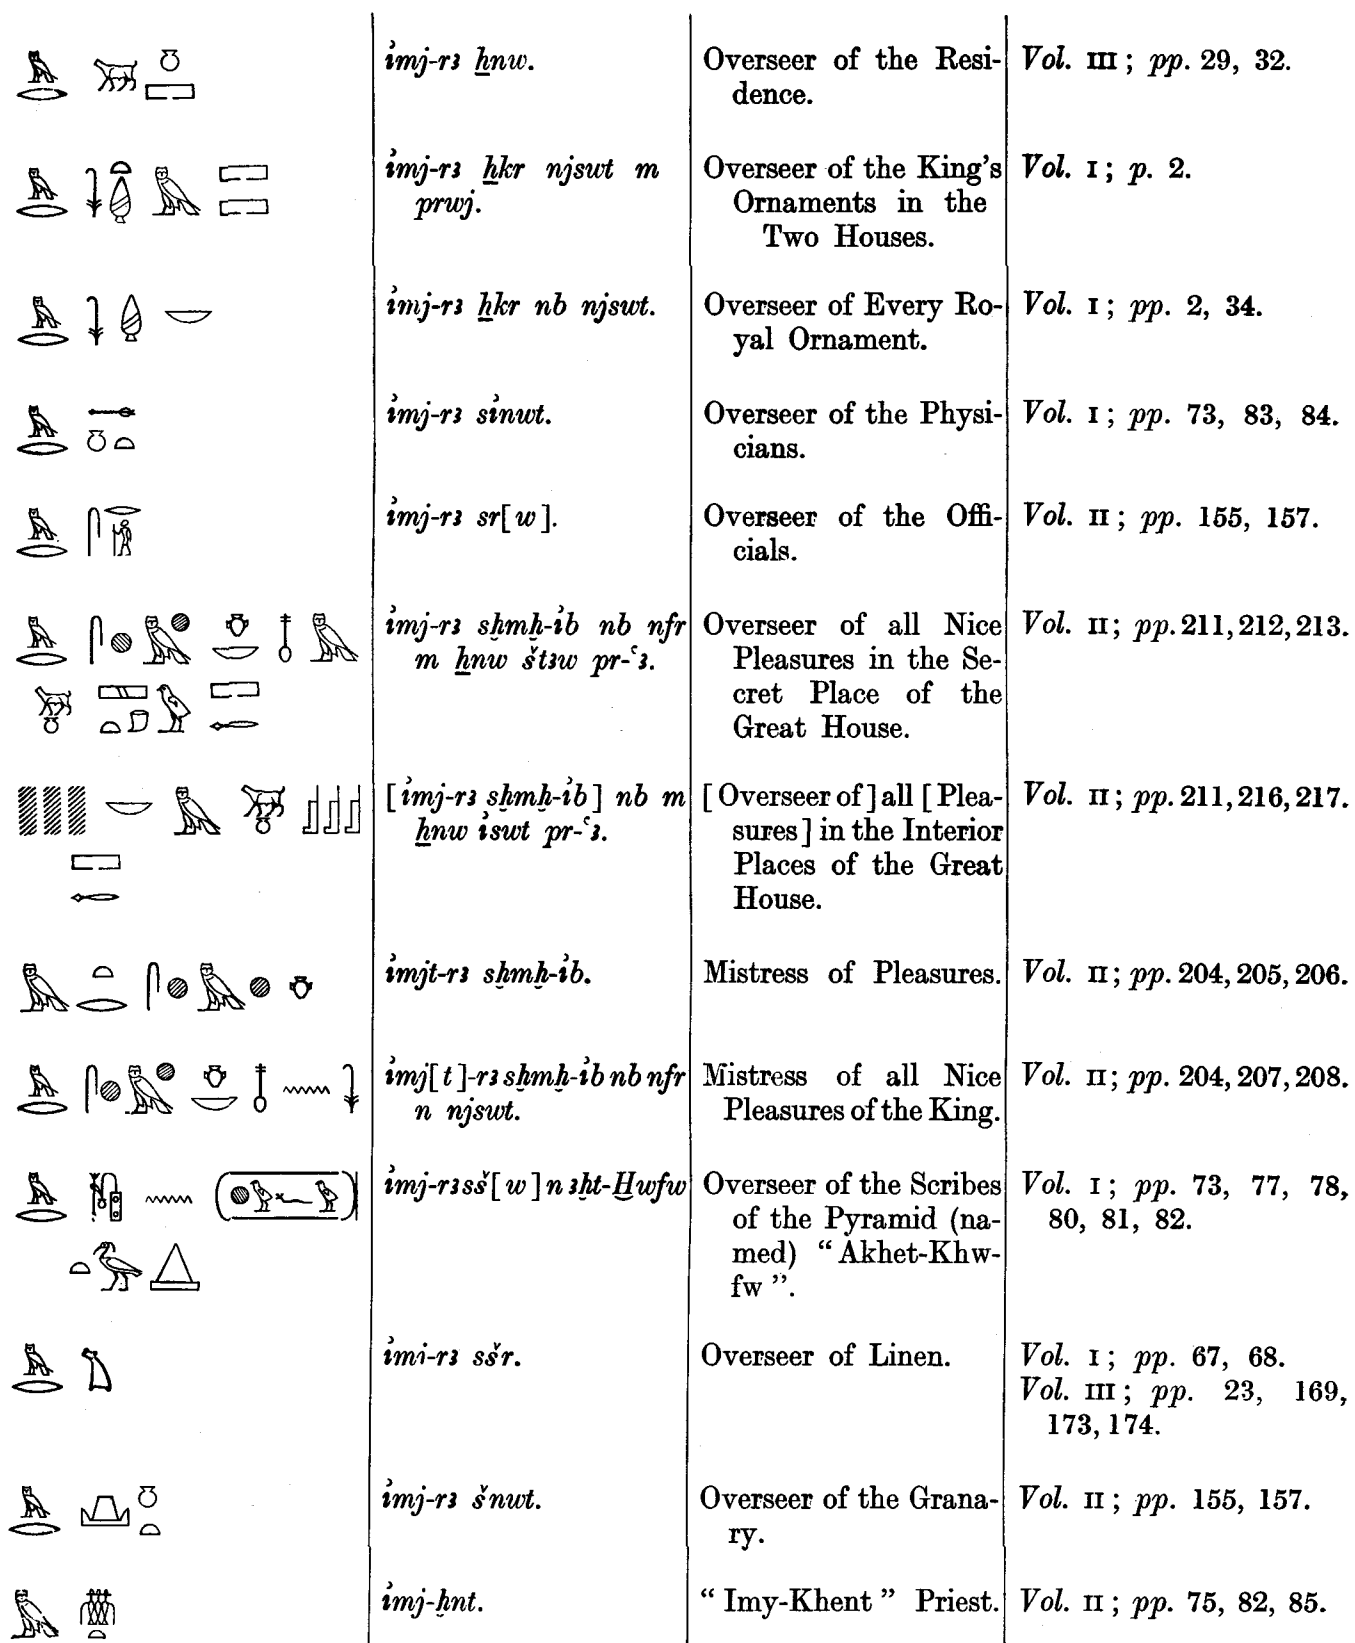 ỉmj-rꜣ ẖnw.
Overseer of the Resi-
dence.
Vol. III; pp. 29, 32.
ỉmj-rꜣ ẖkr njswt m
prwj.
Overseer of the King's
Ornaments in the
Two Houses.
Vol. I; p. 2.
ỉmj-rꜣ ẖkr nb njswt.
Overseer of Every Ro-
yal Ornament.
Vol. I; pp. 2, 34.
ỉmj-rꜣ sỉnwt.
Overseer of the Physi-
cians.
Vol. I; pp. 73, 83, 84.
ỉmj-rꜣ sr[w].
Overseer of the Offi-
cials.
Vol. II; pp. 155, 157.
ỉmj-rꜣ sḫmḫ-ỉb nb nfr
m ẖnw štꜣw pr-ꜥꜣ.
Overseer of all Nice
Pleasures in the Se-
cret Place of the
Great House.
Vol. II; pp. 211, 212, 213.
[ỉmj-rꜣ sḫmḫ-ỉb] nb m
ẖnw ỉswt pr-ꜥꜣ.
[Overseer of] all [Plea-
sures] in the Interior
Places of the Great
House.
Vol. II; pp. 211, 216, 217.
ỉmjt-rꜣ sḫmḫ-ỉb.
Mistress of Pleasures.
Vol. II; pp. 204, 205, 206.
ỉmj[t]-rꜣ sḫmḫ-ỉb nb nfr
n njswt.
Mistress of all Nice
Pleasures of the King.
Vol. II; pp. 204, 207, 208.
ỉmj-rꜣ sš[w] n ꜣḫt-H̱wfw
Overseer of the Scribes
of the Pyramid (na-
med) “Akhet-Khw-
fw”.
Vol. I; pp. 73, 77, 78,
80, 81, 82.
ỉmi-rꜣ sšr.
Overseer of Linen.
Vol. I; pp. 67, 68.
Vol. III; pp. 23, 169,
173, 174.
ỉmj-rꜣ šnwt.
Overseer of the Grana-
ry.
Vol. II; pp. 155, 157.
ỉmj-ḫnt.
“Imy-Khent” Priest.
Vol. II; pp. 75, 82, 85.